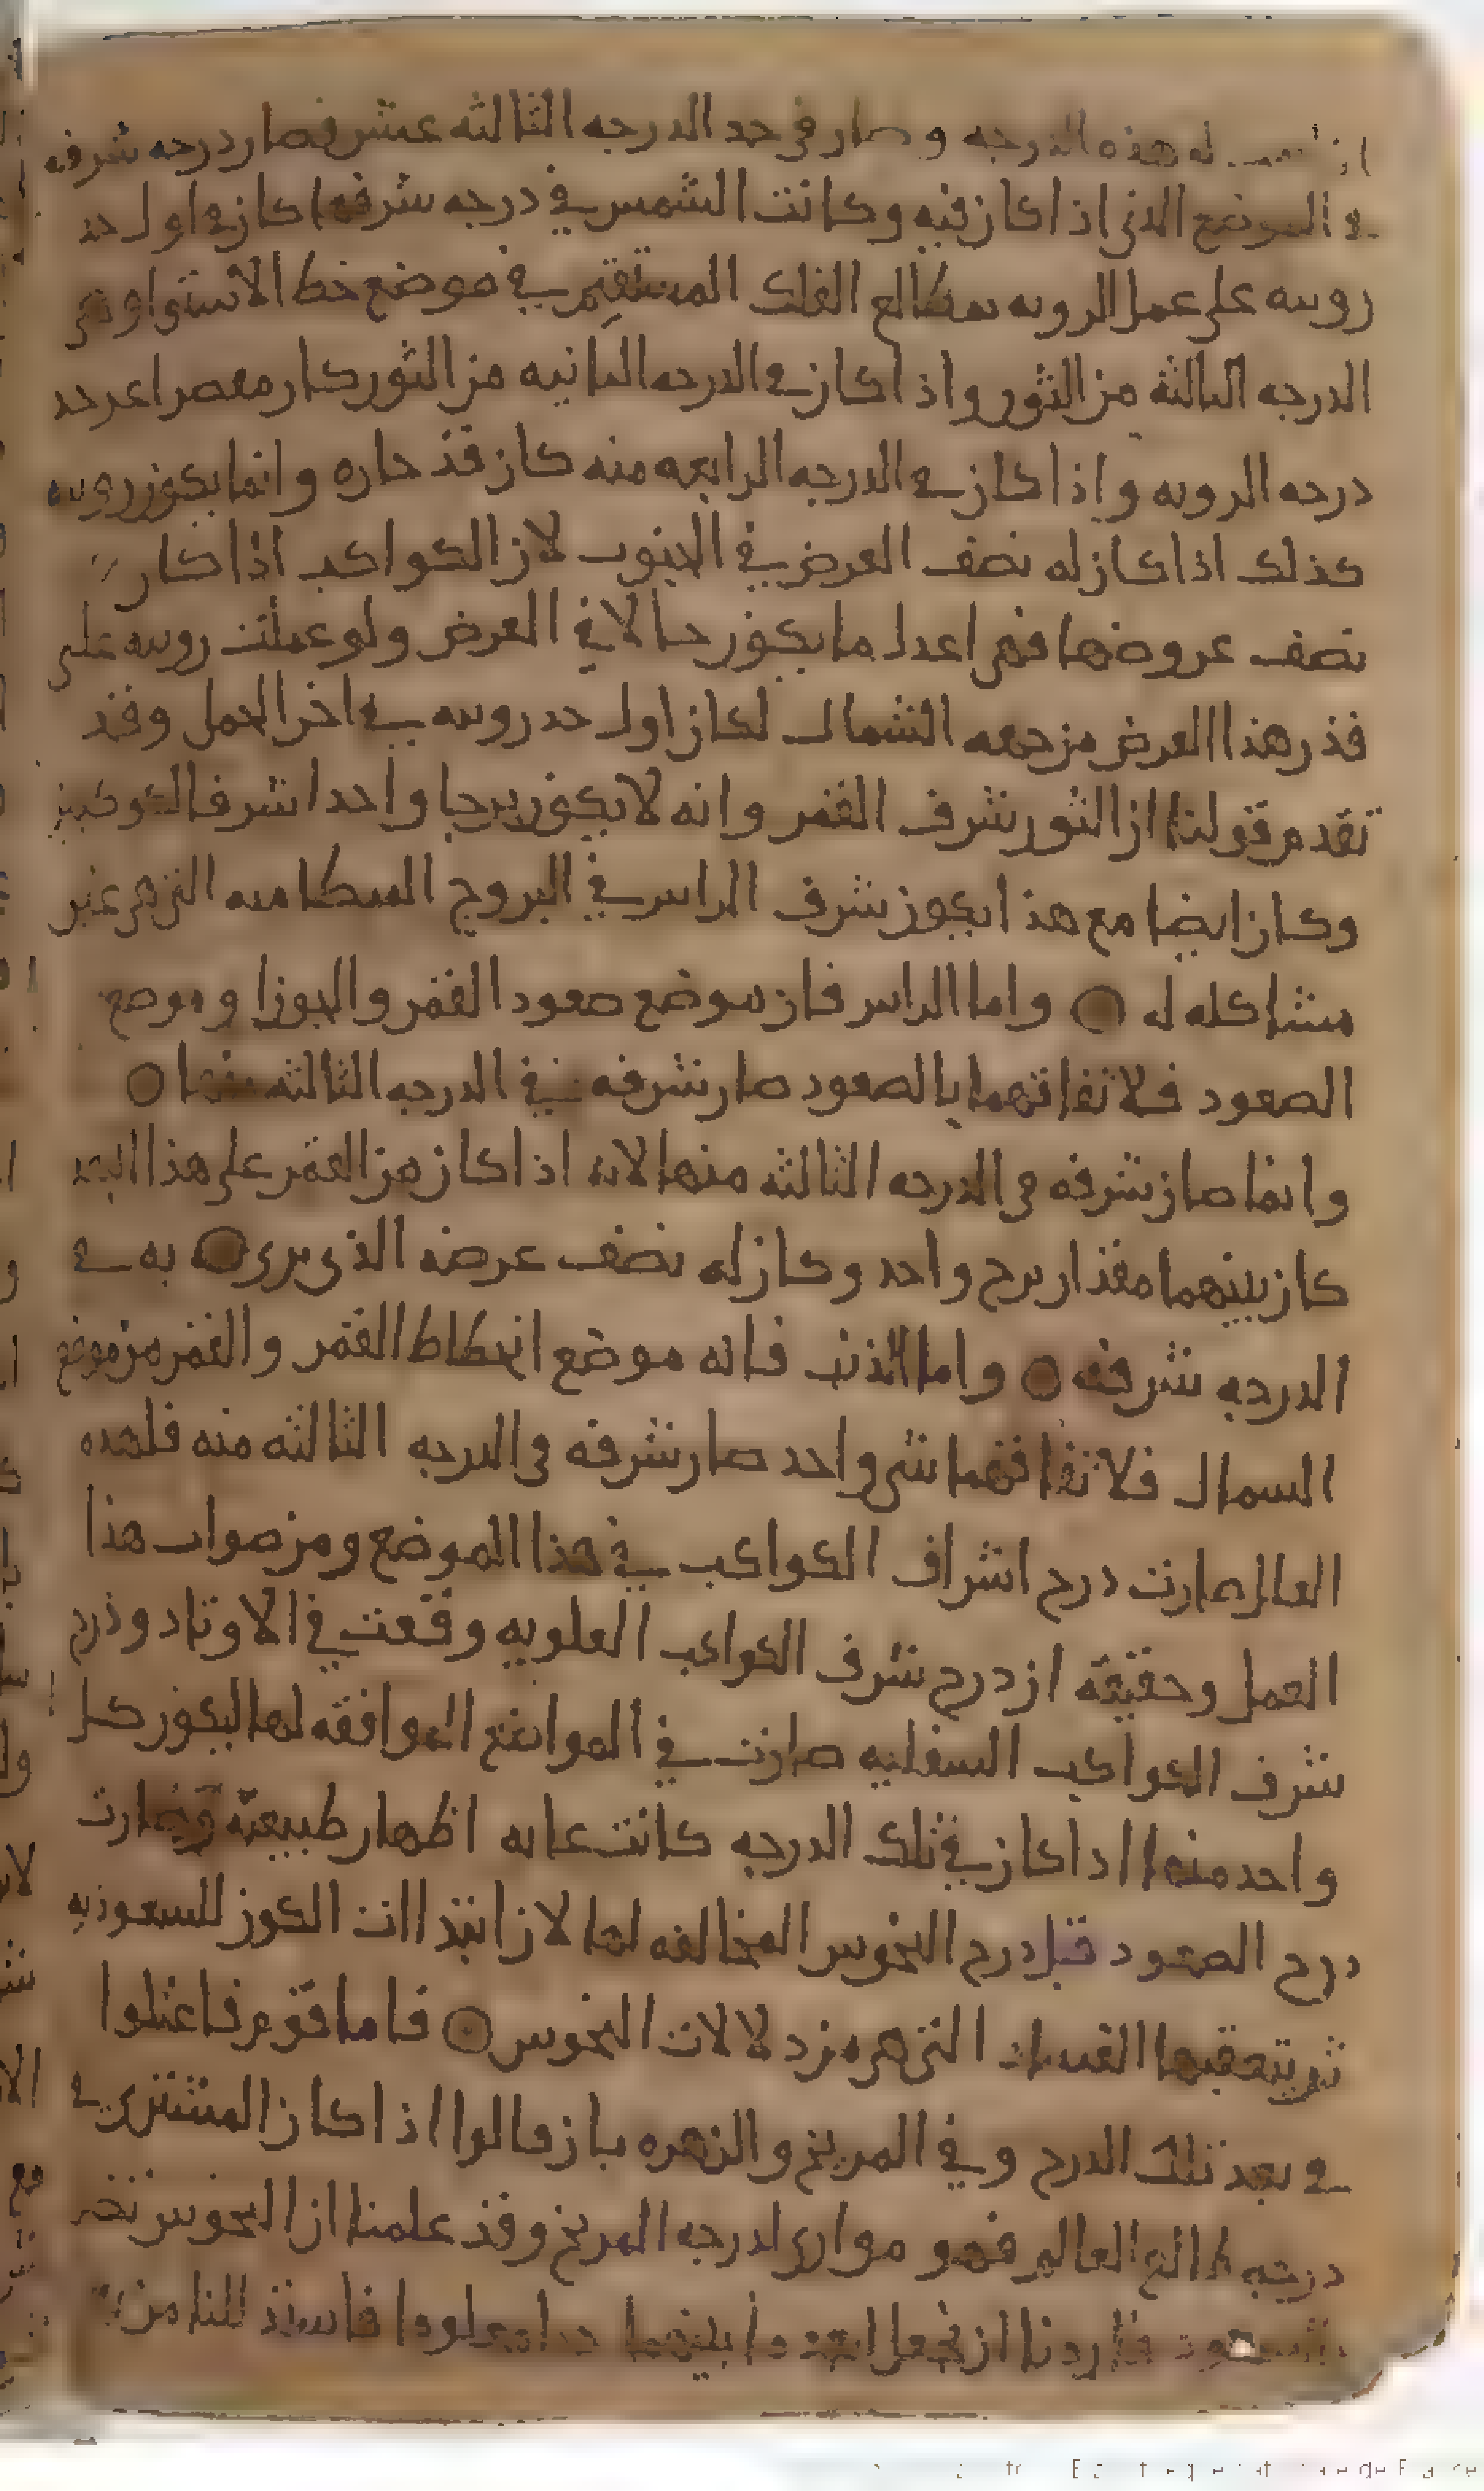 له هذه الدرجه وصار في حد الدرجه الثالثه عشر فصار درجه شرفه
الموضع الذي اذا كان فيه وكانت الشمس في درجه شرفها كان في اول حد
رويته على عمل الرويه بمطالع الفلك المستقيم في موضع خط الاستوا وهي
الدرجه الثالثة من الثور واذا كان في الدرجه الثانيه من الثور كان مقصرا عن حد
درجه الرويه واذا كان في الدرجه الرابعه منه كان قد جازه وانما يكون رويته
كذلك اذا كان له نصف العرض في الجنوب لان الكواكب اذا كان
نصف عروضها فهي اعدل ما يكون حالا في العرض ولو عملت رويته على
قدر هذا العرض من جهه الشمال لكان اول حد رويته في اخر الحمل وقد
تقدم قولنا ان الثور شرف القمر وانه لا يكون برجا واحدا شرفا لكوكبين
وكان ايضا مع هذا يكون شرف الراس في البروج التي هي غير
مشاكله له ○ واما الراس فان موضع صعود القمر والجوزا وموضع
الصعود فلاتفاقهما بالصعود صار شرفه في الدرجه الثالثه منها ○
وانما صار شرفه في الدرجه الثالثه منها لانه اذا كان من القمر على هذا البعد
كان بينهما مقدار برج واحد وكان له نصف عرضه الذي يرى ○ به في
الدرجه شرفه ○ واما الذنب فانه موضع انحطاط القمر والقمر من موضع
الشمال فلاتفاقهما شي واحد صار شرفه في الدرجه الثالثه منه فلهذه
العلل صارت درج اشراف الكواكب في هذا الموضع ومن صواب هذا
العمل وحقيقة ان درج شرف الكواكب العلويه وقعت في الاوتاد ودرج
شرف الكواكب السفليه صارت في المواضع الموافقه لها ليكون كل
واحد منها اذا كان في تلك الدرجه كانت غايه اظهار طبيعته وصارت
درج الصعود قبل درج النحوس المخالفه لها لان ابتداات الكون للسعوديه
ثم يتعقبها التي هي من دلالات النحوس ○ فاما قوم فاعتلوا
في بعد تلك الدرج وفي المريخ والزهره بان قالوا اذا كان المشتري في
درجه طالع العالم فهو موازي لدرجه المريخ وقد علمنا ان النحوس تضر
بالسعود فاردنا ان نجعل بينهما حدا